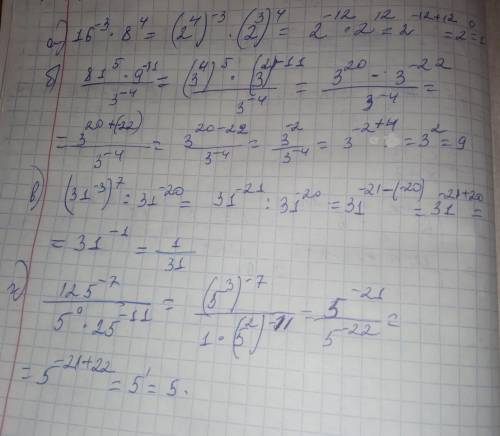 а) 16⁻³ · 8⁴ = (2⁴)⁻³ · (2³)⁴ = 2⁻¹² · 2¹² = 2⁻¹²⁺¹² = 2⁰ = 1
б) (81⁵ · 9⁻¹¹)/3⁻⁴ = ((3⁴)⁵ · (3²)⁻¹¹)/3⁻⁴ = (3²⁰ · 3⁻²²)/3⁻⁴ =
= 3²⁰⁺⁽²²⁾/3⁻⁴ = 3²⁰⁻²²/3⁻⁴ = 3⁻²/3⁻⁴ = 3⁻²⁺⁴ = 3² = 9
в) (31⁻³)⁷ : 31⁻²⁰ = 31⁻²¹ : 31⁻²⁰ = 31⁻²¹⁻⁽⁻²⁰⁾ = 31⁻²¹⁺²⁰ =
= 31⁻¹ = 1/31
г) 125⁻⁷/(5⁰ · 25⁻¹¹) = (5³)⁻⁷/(1 · (5²)⁻¹¹) = 5⁻²¹/5⁻²² =
= 5⁻²¹⁺²² = 5¹ = 5.